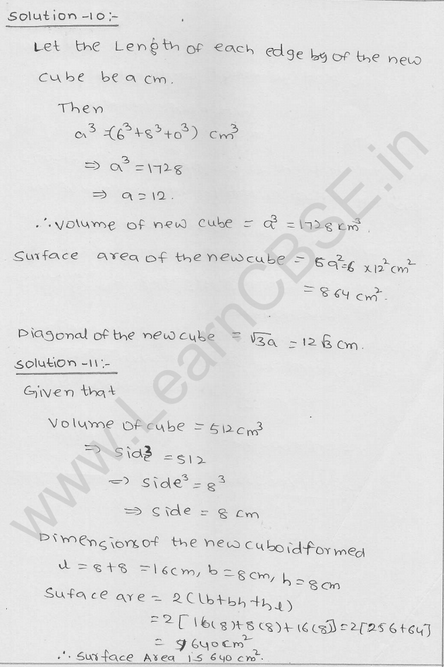 Solution-10:-
Let the Length of each edge by of the new
cube be a cm.
Then
a³=(6³+8³+0³) cm³
⇒ a³=1728
⇒ a=12.
∴ volume of new cube = a³ = 1728 cm³.
Surface area of the new cube = 6a²=6 ×12² cm²
= 864 cm².
Diagonal of the new cube = √3a = 12√3 cm.
Solution-11:-
Given that
Volume of cube = 512 cm³
⇒ side³ = 512
⇒ side³ = 8³
⇒ side = 8 cm
Dimensions of the new cuboid formed
l = 8+8 = 16cm, b = 8cm, h = 8cm
Suface are = 2(lb+bh+hl)
= 2[16(8)+8(8)+16(8)]=2[256+64]
= 640cm²
∴ Surface Area is 640 cm².
www.LearnCBSE.in